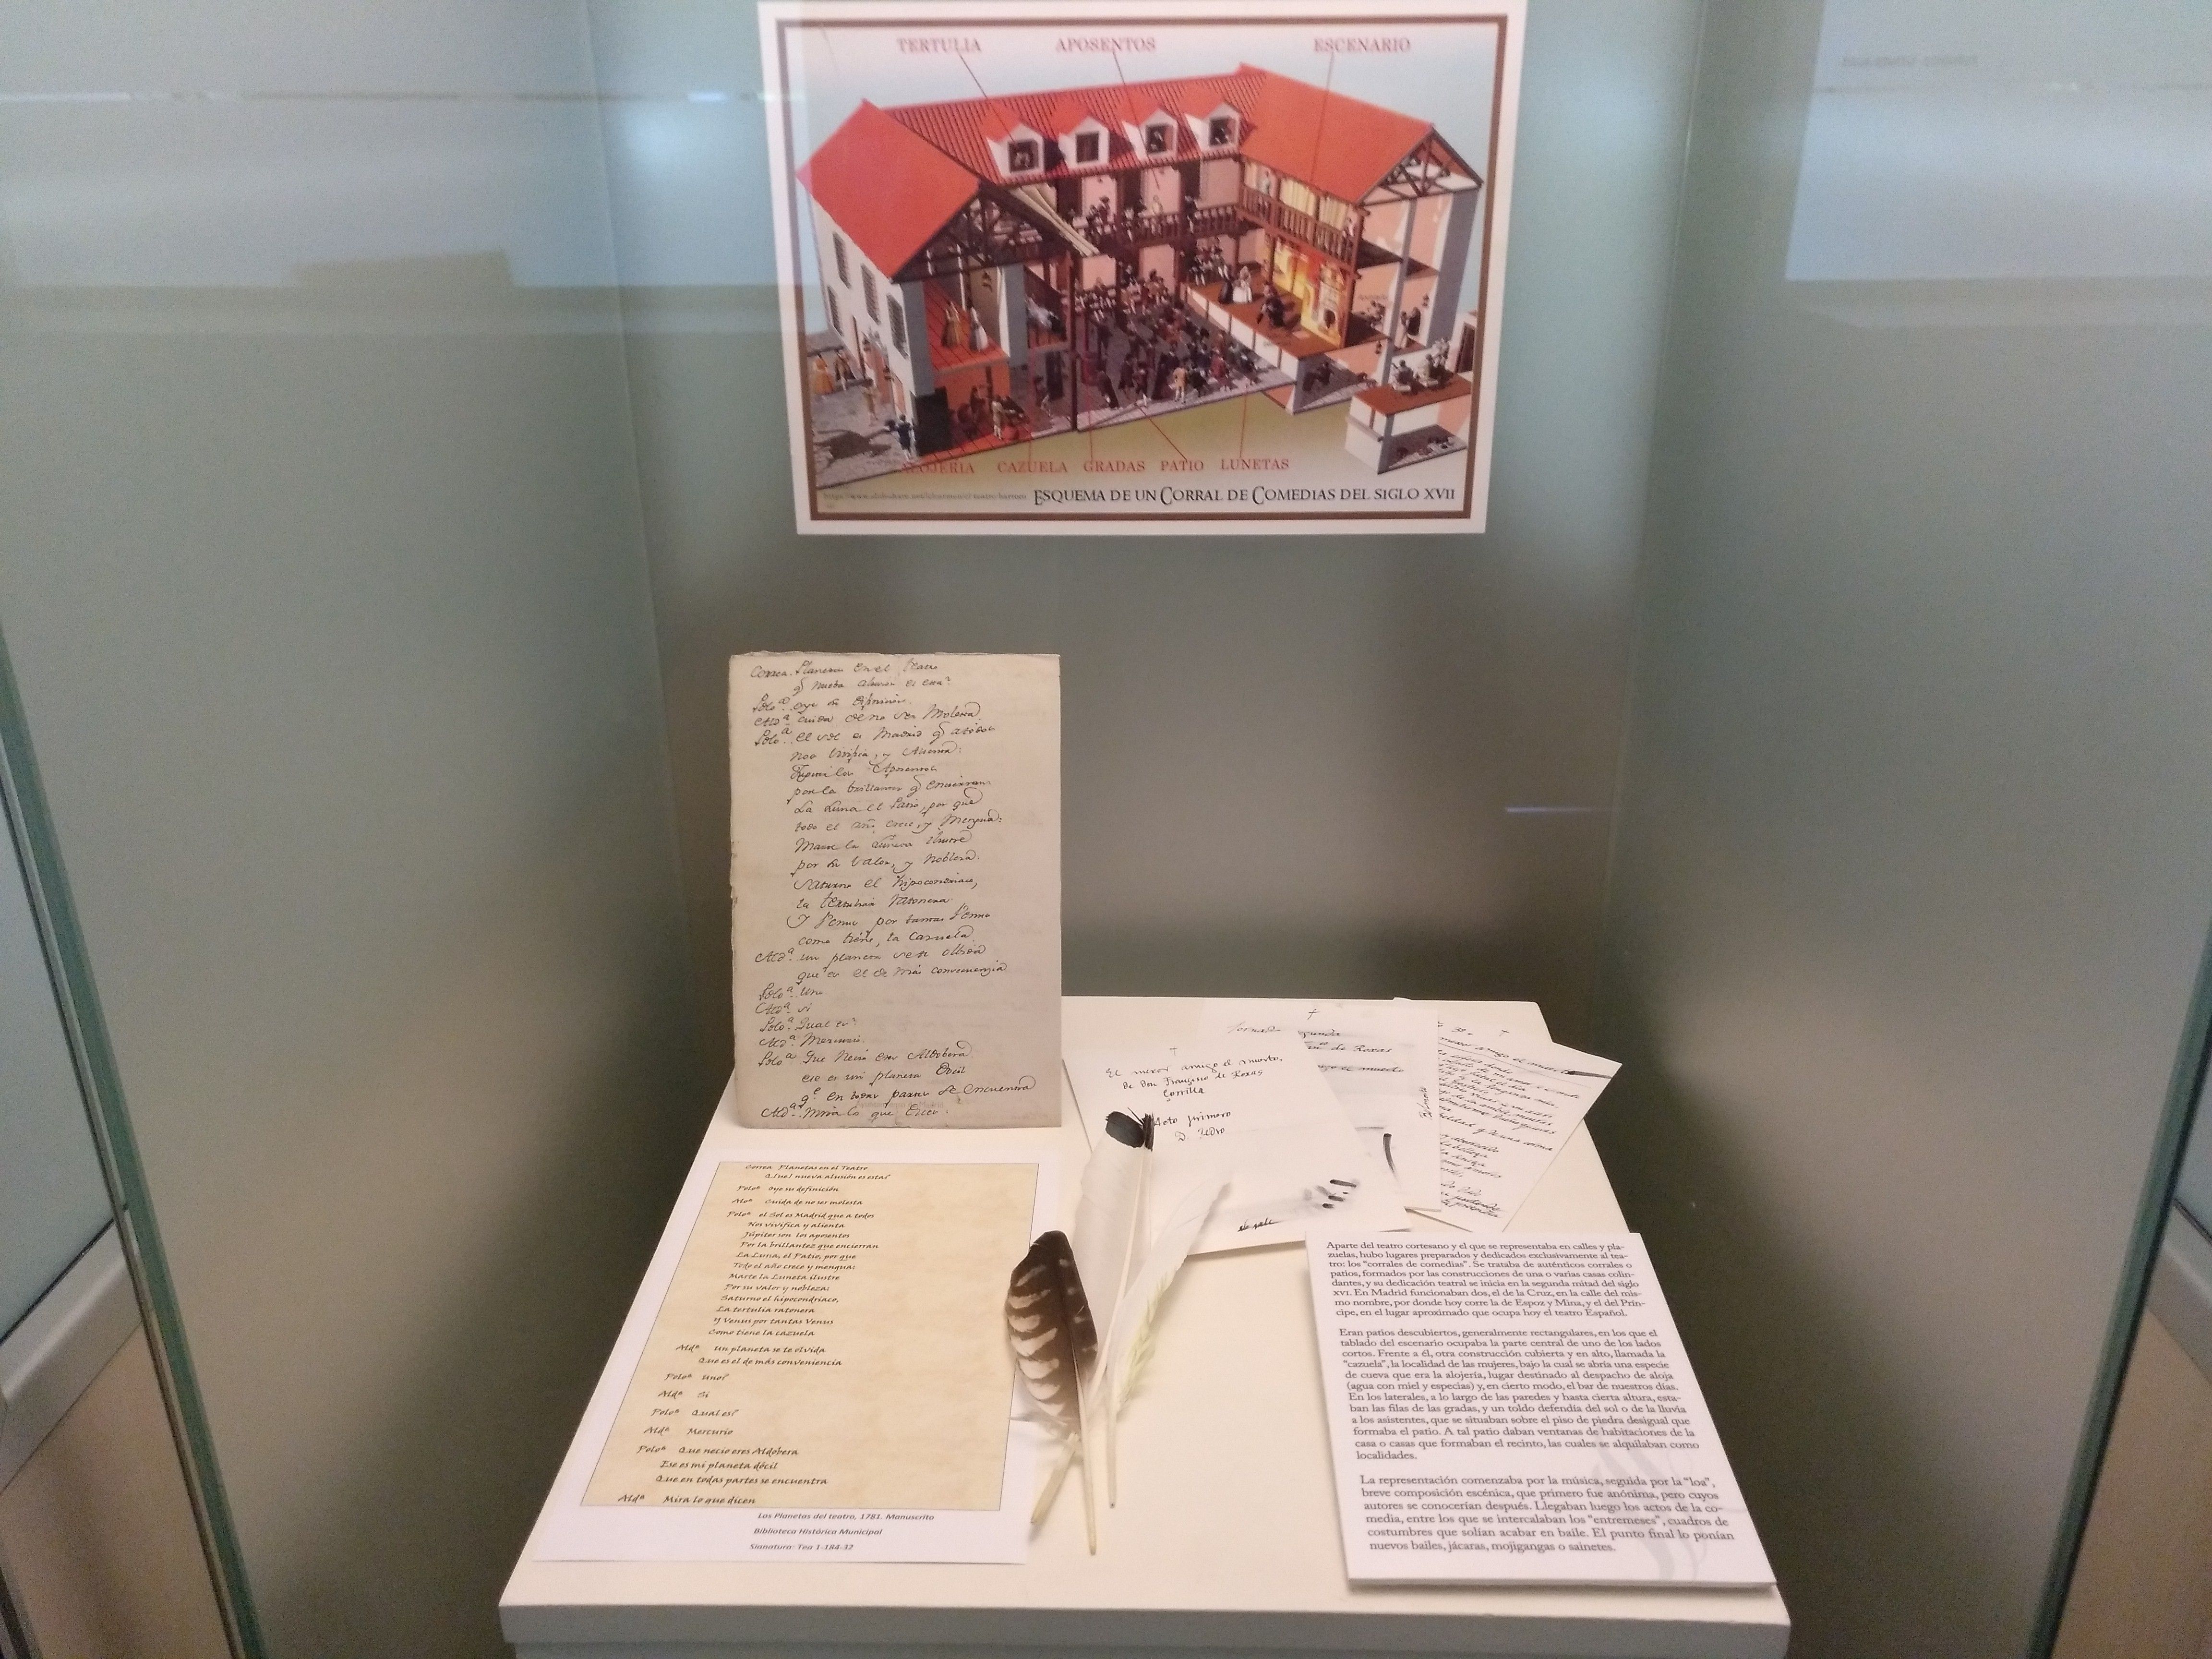 TERTULIA APOSENTOS ESCENARIO
ALOJERIA CAZUELA GRADAS PATIO LUNETAS
ESQUEMA DE UN CORRAL DE COMEDIAS DEL SIGLO XVII
Correa. Planetas en el Teatro
q nueba alusion es esta?
Polo.ª oye su difinicion.
Ald.ª cuida de no ser Molesta
Polo.ª el sol es Madrid q a todos
nos vivifica, y Alienta:
los Aposentos
por la brillantez q encierran
La Luna el Patio, por que
todo el año crece, y Mengua:
Marte la Luneta ilustre
por su valor, y Nobleza.
Saturno el hipocondriaco,
la tertulia ratonera
Y Venus por tantas Venus
como tiene, la Cazuela
Ald.ª un planeta se te olbida
que es el de mas conveniencia
Polo.ª Uno
Ald.ª si
Polo.ª Qual es?
Ald.ª Mercurio.
Polo.ª Que Necio eres Aldobera
ese es un planeta Docil
q.e en todas partes se encuentra
Ald.ª Mira lo que dicen.
Correa Planetas en el Teatro
Que! nueva alusion es esta?
Poloª Oye su definición
Aldª Cuida de no ser molesta
Poloª el Sol es Madrid que a todos
Nos vivifica y alienta
Júpiter son los aposentos
Por la brillantez que encierran
La Luna, el Patio, por que
Todo el año crece y mengua:
Marte la Luneta ilustre
Por su valor y nobleza:
Saturno el hipocondriaco,
La tertulia ratonera
Y Venus por tantas Venus
Como tiene la cazuela
Aldª Un planeta se te olvida
Que es el de más conveniencia
Poloª Uno?
Aldª Si
Poloª Qual es?
Aldª Mercurio
Poloª Que necio eres Aldobera
Ese es mi planeta dócil
Que en todas partes se encuentra
Aldª Mira lo que dicen
Los Planetas del teatro, 1781. Manuscrito
Biblioteca Histórica Municipal
Signatura: Tea 1-184-32
El mejor amigo el muerto.
De Don Francisco de Roxas
Zorrilla
Acto primero
D. Pedro
Jornada segunda
de Roxas
amigo el muerto
mejor amigo el muerto
Aparte del teatro cortesano y el que se representaba en calles y pla-
zuelas, hubo lugares preparados y dedicados exclusivamente al tea-
tro: los "corrales de comedias". Se trataba de auténticos corrales o
patios, formados por las construcciones de una o varias casas colin-
dantes, y su dedicación teatral se inicia en la segunda mitad del siglo
XVI. En Madrid funcionaban dos, el de la Cruz, en la calle del mis-
mo nombre, por donde hoy corre la de Espoz y Mina, y el del Prín-
cipe, en el lugar aproximado que ocupa hoy el teatro Español.
Eran patios descubiertos, generalmente rectangulares, en los que el
tablado del escenario ocupaba la parte central de uno de los lados
cortos. Frente a él, otra construcción cubierta y en alto, llamada la
"cazuela", la localidad de las mujeres, bajo la cual se abría una especie
de cueva que era la alojería, lugar destinado al despacho de aloja
(agua con miel y especias) y, en cierto modo, el bar de nuestros días.
En los laterales, a lo largo de las paredes y hasta cierta altura, esta-
ban las filas de las gradas, y un toldo defendía del sol o de la lluvia
a los asistentes, que se situaban sobre el piso de piedra desigual que
formaba el patio. A tal patio daban ventanas de habitaciones de la
casa o casas que formaban el recinto, las cuales se alquilaban como
localidades.
La representación comenzaba por la música, seguida por la "loa",
breve composición escénica, que primero fue anónima, pero cuyos
autores se conocerían después. Llegaban luego los actos de la co-
media, entre los que se intercalaban los "entremeses", cuadros de
costumbres que solían acabar en baile. El punto final lo ponían
nuevos bailes, jácaras, mojigangas o sainetes.